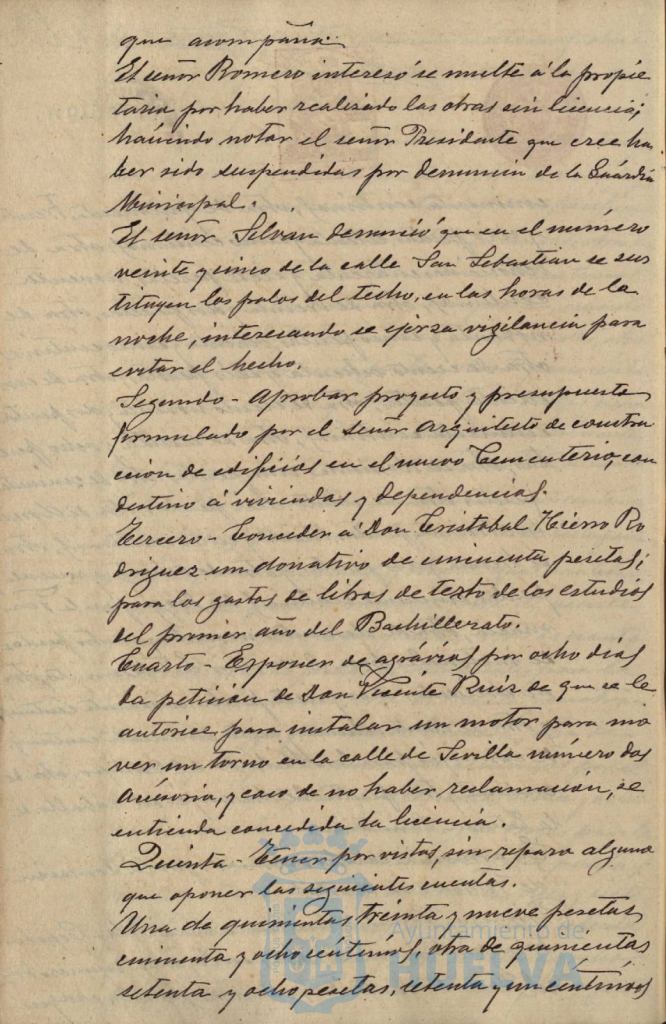 que acompaña.
El señor Romero interesó se multe á la propie
taria por haber realizado las obras sin licencia;
haciendo notar el señor Presidente que cree ha
ber sido suspendidas por denuncia de la Guardia
Municipal.
El señor Selvan denunció que en el número
veinte y cinco de la calle San Sebastian se sus
tituyen los palos del techo, en las horas de la
noche, interesando se ejerza vigilancia para
evitar el hecho.
Segundo - Aprobar proyecto y presupuesto
formulado por el señor Arquitecto de constru
ccion de edificios en el nuevo Cementerio, con
destino á viviendas y dependencias.
Tercero - Conceder á Don Cristobal Hierro Ro
driguez un donativo de cincuenta pesetas;
para los gastos de libros de texto de los estudios
del primer año del Bachillerato.
Cuarto - Exponer de agrávios por ocho dias
la petición de Don Vicente Ruiz de que se le
autorice para instalar un motor para mo
ver un torno en la calle de Sevilla número dos
Accesoria, y caso de no haber reclamación, se
entienda concedida la licencia.
Quinta - Tener por vistas, sin reparo alguno
que oponer las seguientes cuentas.
Una de quinientas treinta y nueve pesetas
cincuenta y ocho céntimos, otra de quinientas
setenta y ocho pesetas, setenta y un centimos
Ayuntamiento de
HUELVA